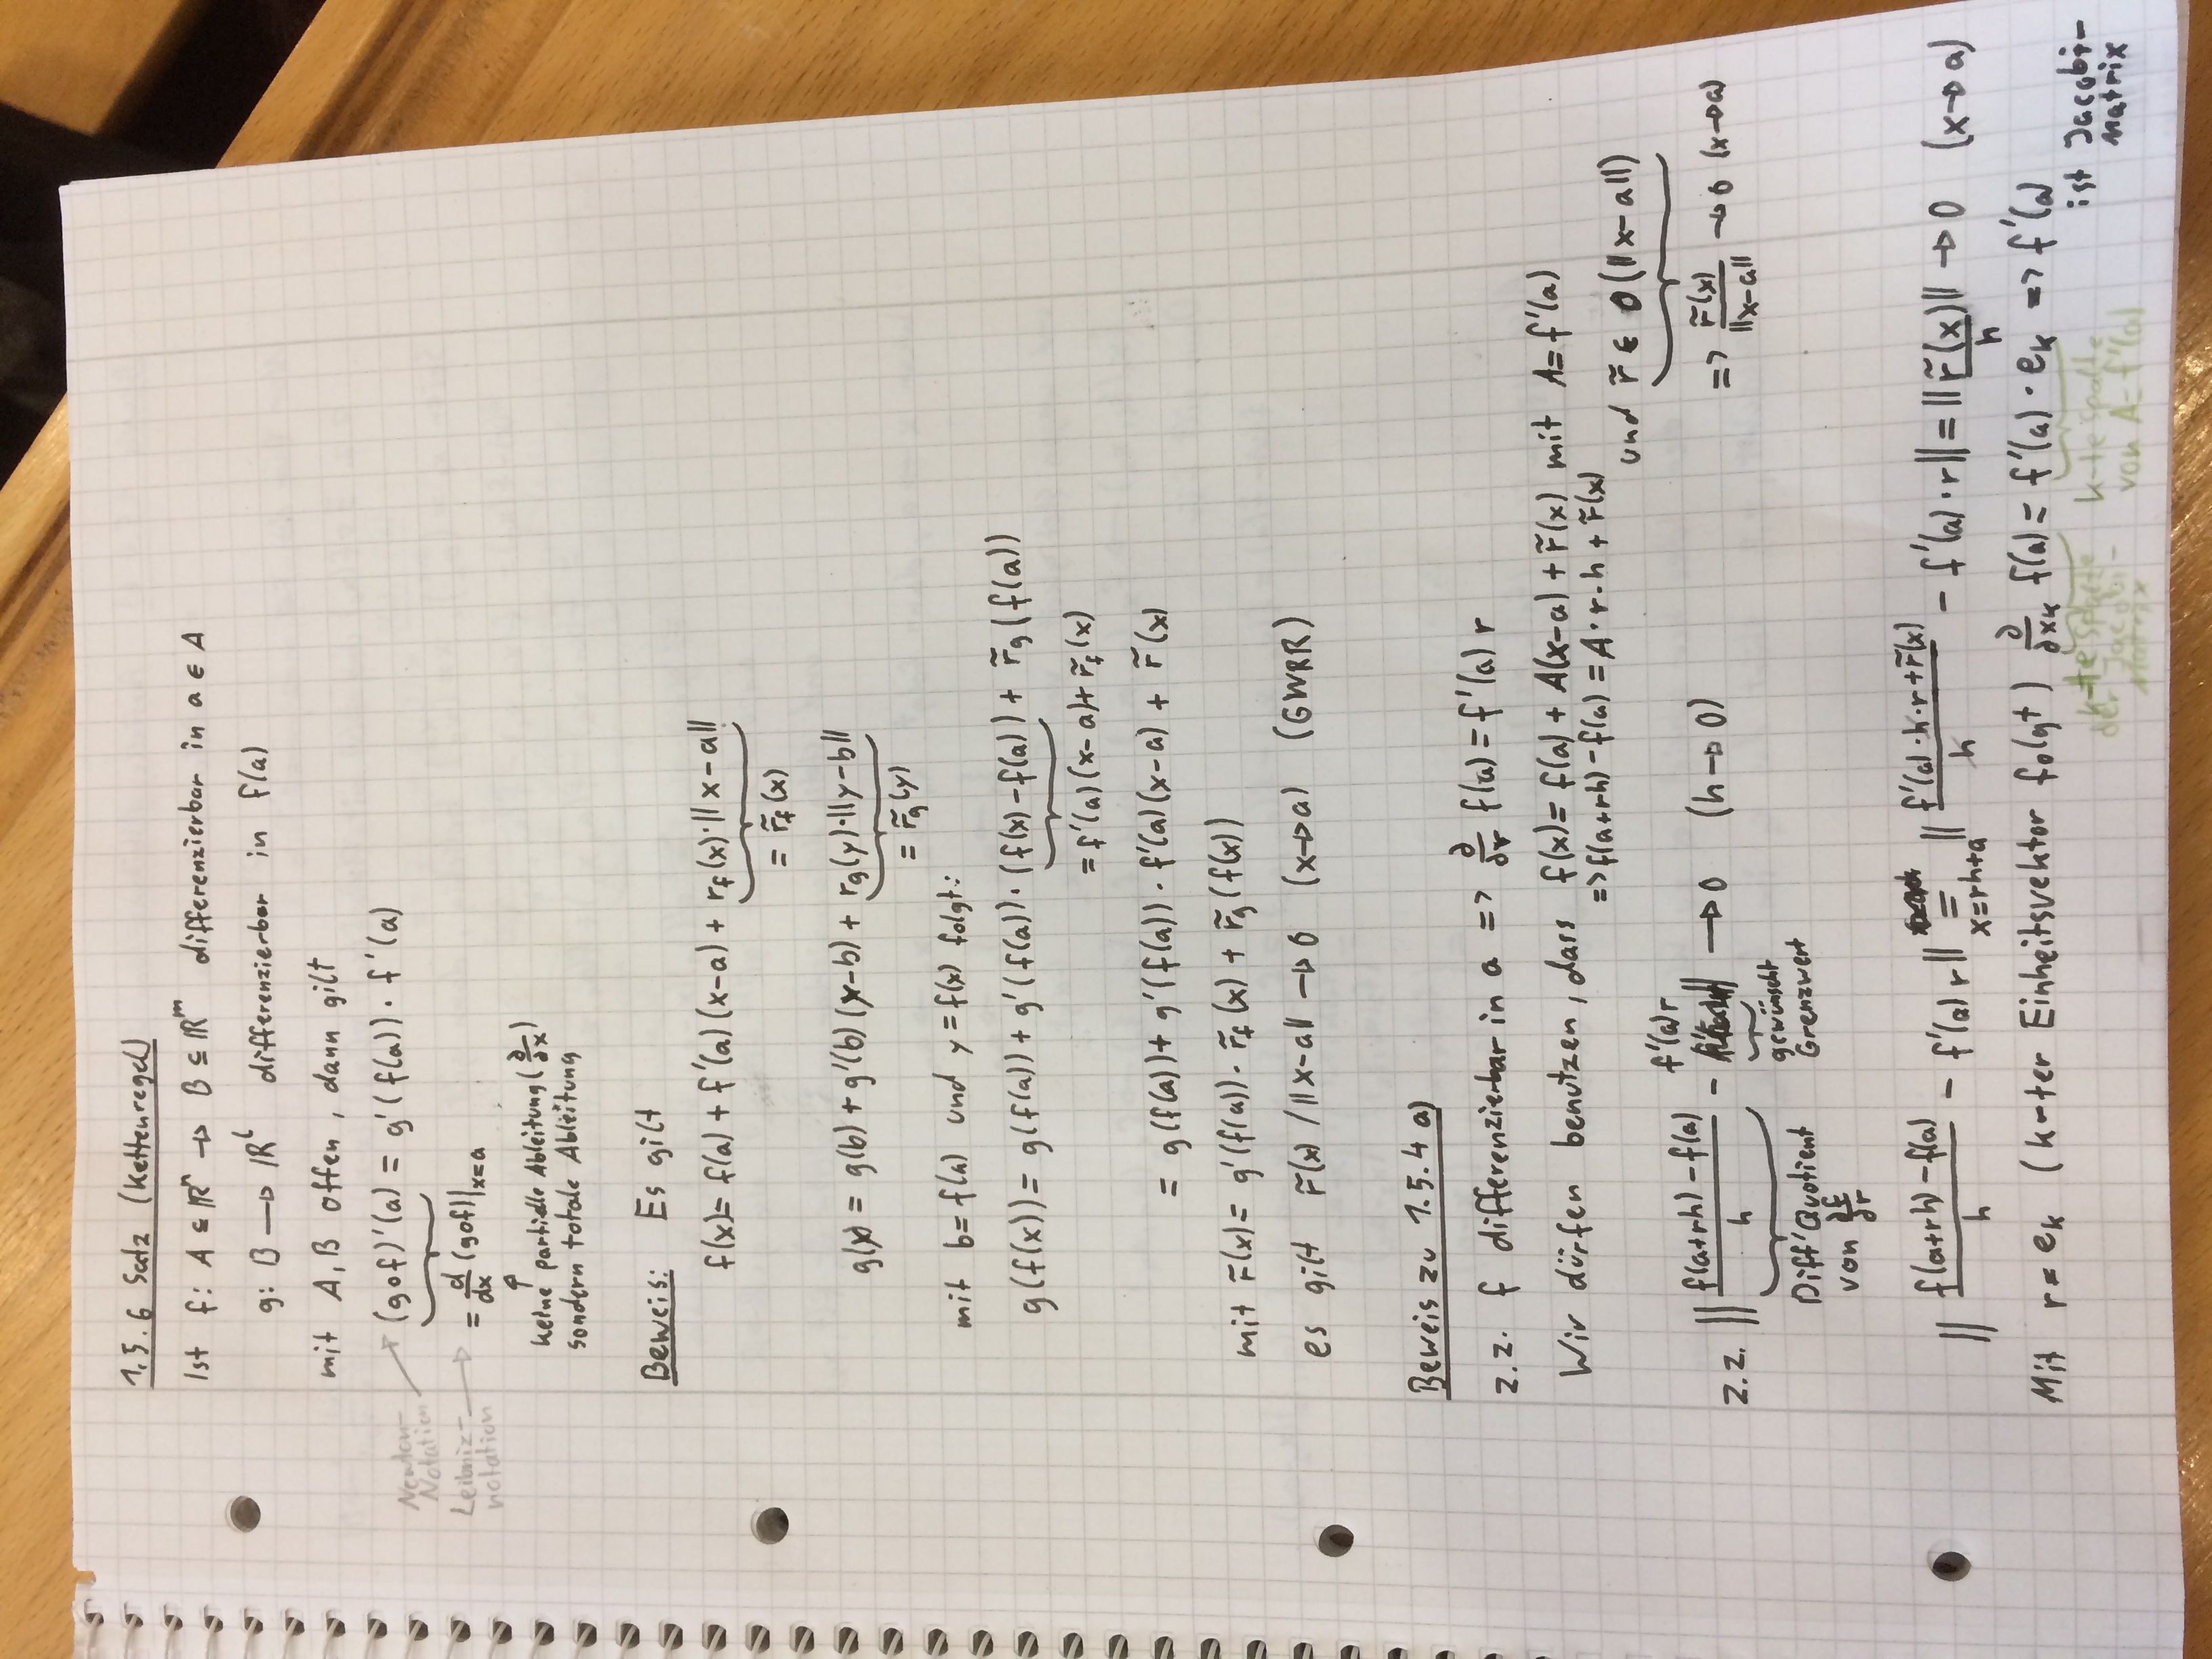 1.5.6 Satz (Kettenregel)
Ist f: A ⊆ ℝⁿ → B ⊆ ℝᵐ differenzierbar in a ∈ A
g: B → ℝˡ differenzierbar in f(a)
mit A, B offen, dann gilt
Newton-
Notation
(g∘f)'(a) = g'(f(a)) · f'(a)
Leibniz-
notation
= d/dx (g∘f)|ₓ₌ₐ
keine partielle Ableitung (∂/∂x)
sondern totale Ableitung
Beweis: Es gilt
f(x) = f(a) + f'(a)(x-a) + r_f(x)·||x-a||
= r̃_f(x)
g(y) = g(b) + g'(b)(y-b) + r_g(y)·||y-b||
= r̃_g(y)
mit b = f(a) und y = f(x) folgt:
g(f(x)) = g(f(a)) + g'(f(a)) · (f(x) - f(a)) + r̃_g(f(a))
= f'(a)(x-a) + r̃_f(x)
= g(f(a)) + g'(f(a)) · f'(a)(x-a) + r̃(x)
mit r̃(x) = g'(f(a)) · r̃_f(x) + r̃_g(f(x))
es gilt r̃(x) / ||x-a|| → 0 (x → a) (GWRR)
Beweis zu 1.5.4 a)
z.z. f differenzierbar in a => ∂/∂r f(a) = f'(a) r
Wir dürfen benutzen, dass f(x) = f(a) + A(x-a) + r̃(x) mit A = f'(a)
=> f(a+rh) - f(a) = A · r · h + r̃(x)
und r̃ ∈ o(||x-a||)
z.z. || (f(a+rh) - f(a))/h - f'(a)r || → 0 (h → 0)
=> r̃(x)/||x-a|| → 0 (x → a)
Diff'Quotient
von ∂f/∂r
gewünscht
Grenzwert
|| (f(a+rh) - f(a))/h - f'(a) r || = || (f'(a) · h · r + r̃(x))/h - f'(a) · r || = || r̃(x)/h || → 0 (x → a)
x = rh+a
Mit r = eₖ (k-ter Einheitsvektor folgt) ∂/∂xₖ f(a) = f'(a) · eₖ => f'(a)
ist Jacobi-
Matrix
k-te Spalte
der Jacobi-
Matrix
k-te Spalte
von A = f'(a)